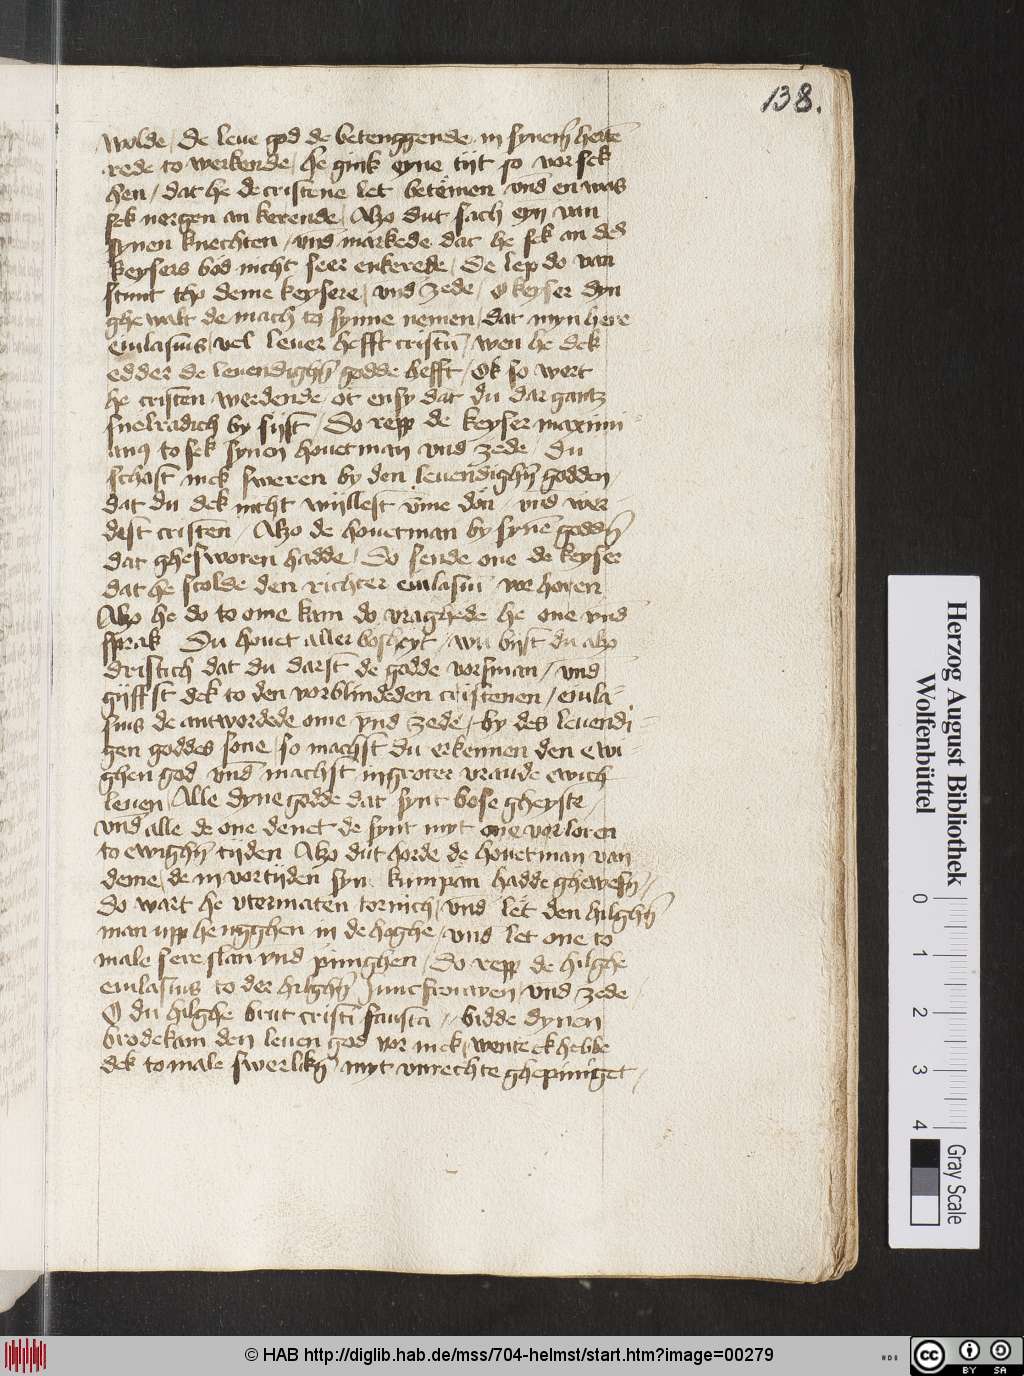 138.
wolde / de leue god de betenggende in synem herte
rede to werkende / he gink eyne tijt so vor sek
hen / dat he de cristene let betemen vnd en was
sek nergen an kerende / Alzo dut sach eyn van
synen knechten / vnd markede dat he sek an des
keysers bod nicht seer enkerede / De lep do van
stunt tho deme keysere / vnd zede / O keyser dyn
ghewalt de mach to synne nemen / dat myn here
euilasius vel leuer hefft cristu / wen he dek
edder de leuendighen godde hefft / Ok so wert
he cristen werdende / ot ensy dat du dar gantz
snelradich by sijst / Do repp de keyser maximi
anus to sek synen houetman vnd zede / Du
schast mek sweren by den leuendighen godden /
dat du dek nicht wyllest vme don / vnd wer
dest cristen / Alzo de houetman by syne godden
dat ghesworen hadde / Do sende one de keyser
dat he scolde den richter euilasiu vorhoren
Alzo he do to ome kam do vraghede he one vnd
sprak Du houet aller bosheyt / wu byst du alzo
dristich dat du darst de godde vorsman / vnd
gijffst dek to den vorblindeden cristenen / euila
sius de antwordede ome vnd zede / by des leuendi
gen goddes sone / so machst du erkennen den ewi
ghen god vnd machst in groter vraude ewich
leuen / Alle dyne godde dat synt bose gheyste /
vnd alle de one denet de synt myt one vorloren
to ewighen tijden Alzo dut horde de houetman van
deme / de in vortijden syn kumpan hadde ghewesen //
Do wart he vtermaten tornich / vnd let den hilghen
man upp hengghen in de hoghe / vnd let one to
male sere slan vnd pinighen / Do repp de hilghe
euilasius to der hilghen Juncfrouwen / vnd zede /
O du hilghe brut cristi fausta // bidde dynen
brodekam den leuen god vor mek / wente ek hebbe
dek to male swerliken myt vnrechte ghepiniget /
Herzog August Bibliothek
Wolfenbüttel
0 1 2 3 4
Gray Scale
© HAB http://diglib.hab.de/mss/704-helmst/start.htm?image=00279
HAB
CC BY SA